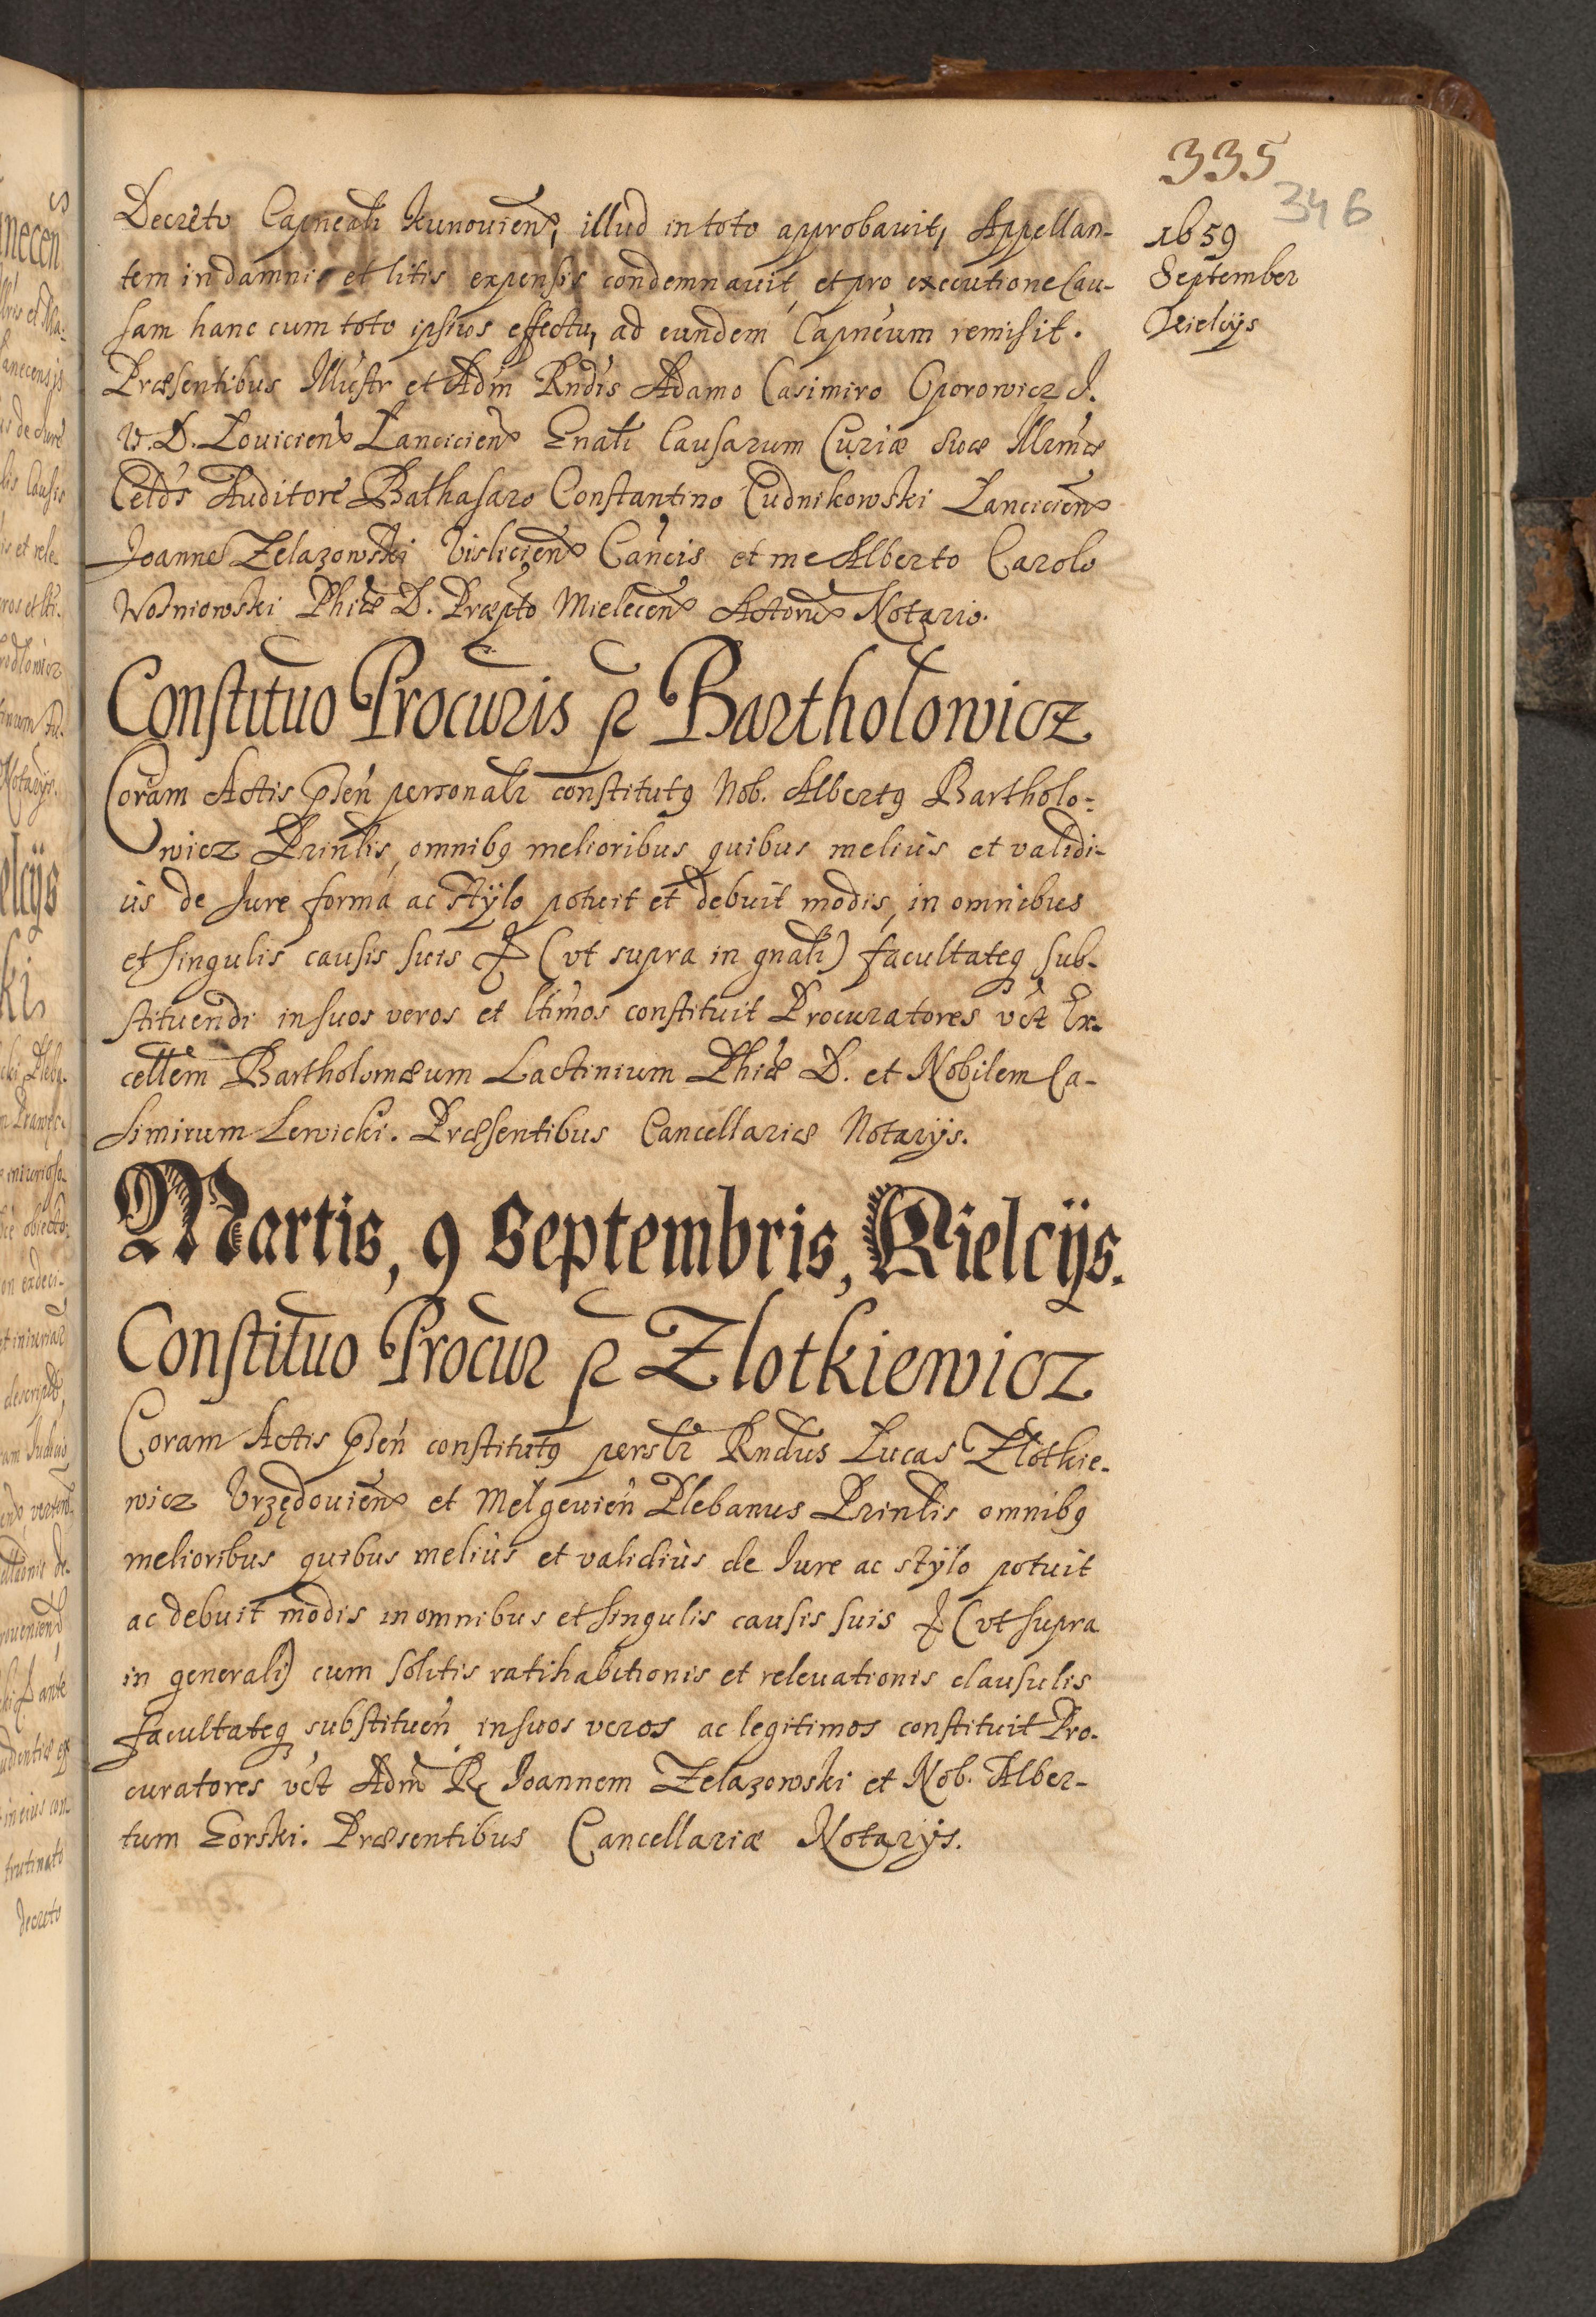 335
346
1659
September
Kielcijs
Decreto Capneali Kunouien, illud in toto approbauit, Appellan-
tem in damnis et litis expensis condemnauit, et pro executione Cau-
sam hanc cum toto ipsius effectu, ad eundem Capneum remisit.
Præsentibus Illustr et Adm Rndis Adamo Casimiro Oporowicz J.
V. D. Louicien Lancicien Gnali Causarum Curiæ Suæ Illrmæ
Celds Auditore Balthasaro Constantino Cudnikowski Lancicien
Joanne Zelazowski Vislicien Cancis et me Alberto Carolo
Wosniowski Phiæ D. Præpto Mielecen Actorum Notario.
Constituo Procuris p Bartholowicz
Coram Actis psen personalr constitutq Nob. Albertq Bartholo-
wicz Prinlis, omnibq melioribus quibus meliùs et validi-
ùs de Jure formá ac stÿlo potuit et debuit modis, in omnibus
et singulis causis suis & (vt supra in gnali) facultateq sub-
stituendi in suos veros et ltimos constituit Procuratores vct Ex-
cellem Bartholomæum Lactinium Phiæ D. et Nobilem Ca-
simirum Lewicki. Præsentibus Cancellariæ Notarijs.
Martis, 9 Septembris, Kielcijs.
Constituo Procur p Zlotkiewicz
Coram Actis psen constitutq perslr Rndus Lucas Zlotkie-
wicz Vrzędouien et Melgeuien Plebanus Prinlis omnibq
melioribus quibus meliùs et validiùs de Jure ac stÿlo potuit
ac debuit modis in omnibus et singulis causis suis & (vt supra
in generali) cum solitis ratihabitionis et releuationis clausulis
facultateq substituen in suos veros ac legitimos constituit Pro-
curatores vct Adm R Joannem Zelazowski et Nob. Alber-
tum Gorski. Præsentibus Cancellariæ Notarijs.